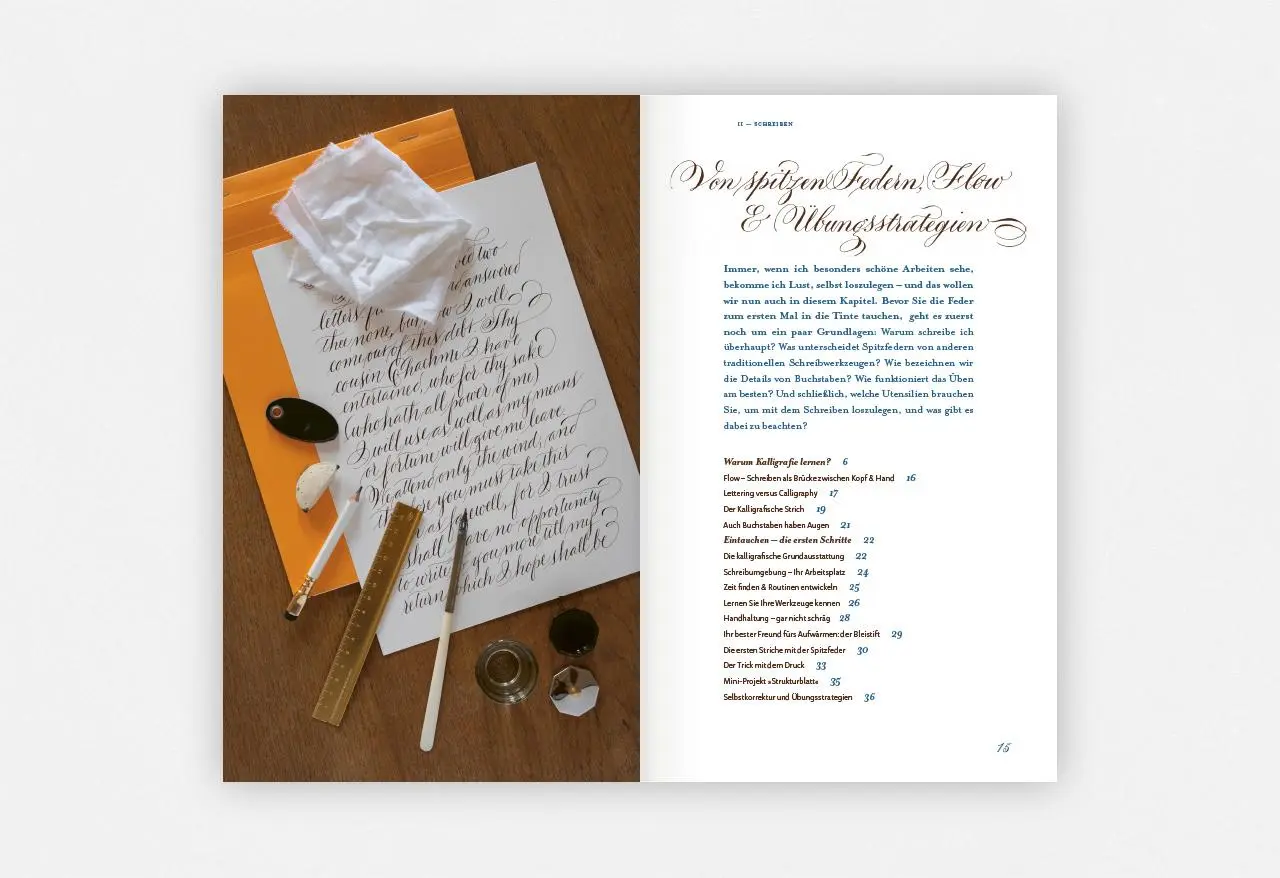 two
answered
letters
thee none, but now I will
come out of this debt. Thy
cousin I have
entertained, who for thy sake
(who hath all power of me)
I will use as well as my means
or fortune will give me leave.
We attend only the wind, and
you must take this
as farewell, for I trust
shall have no opportunity
to write to you more till my
return which I hope shall be
II — SCHREIBEN
Von spitzen Federn, Flow
& Übungsstrategien
Immer, wenn ich besonders schöne Arbeiten sehe,
bekomme ich Lust, selbst loszulegen – und das wollen
wir nun auch in diesem Kapitel. Bevor Sie die Feder
zum ersten Mal in die Tinte tauchen, geht es zuerst
noch um ein paar Grundlagen: Warum schreibe ich
überhaupt? Was unterscheidet Spitzfedern von anderen
traditionellen Schreibwerkzeugen? Wie bezeichnen wir
die Details von Buchstaben? Wie funktioniert das Üben
am besten? Und schließlich, welche Utensilien brauchen
Sie, um mit dem Schreiben loszulegen, und was gibt es
dabei zu beachten?
Warum Kalligrafie lernen? 6
Flow – Schreiben als Brücke zwischen Kopf & Hand 16
Lettering versus Calligraphy 17
Der Kalligrafische Strich 19
Auch Buchstaben haben Augen 21
Eintauchen – die ersten Schritte 22
Die kalligrafische Grundausstattung 22
Schreibumgebung – Ihr Arbeitsplatz 24
Zeit finden & Routinen entwickeln 25
Lernen Sie Ihre Werkzeuge kennen 26
Handhaltung – gar nicht schräg 28
Ihr bester Freund fürs Aufwärmen: der Bleistift 29
Die ersten Striche mit der Spitzfeder 30
Der Trick mit dem Druck 33
Mini-Projekt »Strukturblatt« 35
Selbstkorrektur und Übungsstrategien 36
15